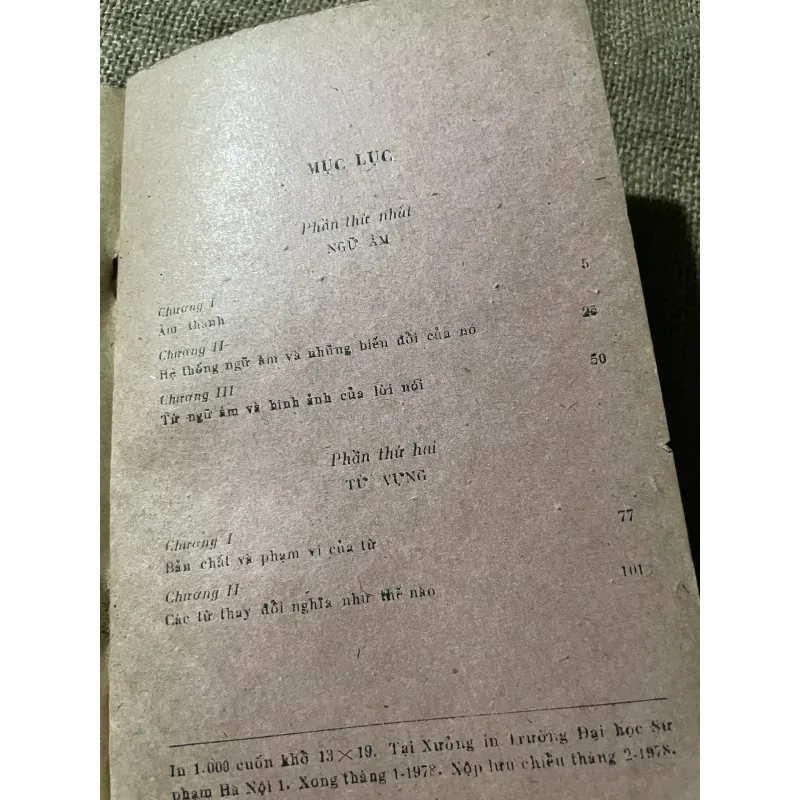 MỤC LỤC
Phần thứ nhất
NGỮ ÂM
Chương I
Âm thanh 5
Chương II
Hệ thống ngữ âm và những biến đổi của nó 26
Chương III
Từ ngữ âm và hình ảnh của lời nói 50
Phần thứ hai
TỪ VỰNG
Chương I
Bản chất và phạm vi của từ 77
Chương II
Các từ thay đổi nghĩa như thế nào 101
In 1.000 cuốn khổ 13×19. Tại Xưởng in Trường Đại học Sư
phạm Hà Nội 1. Xong tháng 1-1978. Nộp lưu chiểu tháng 2-1978.